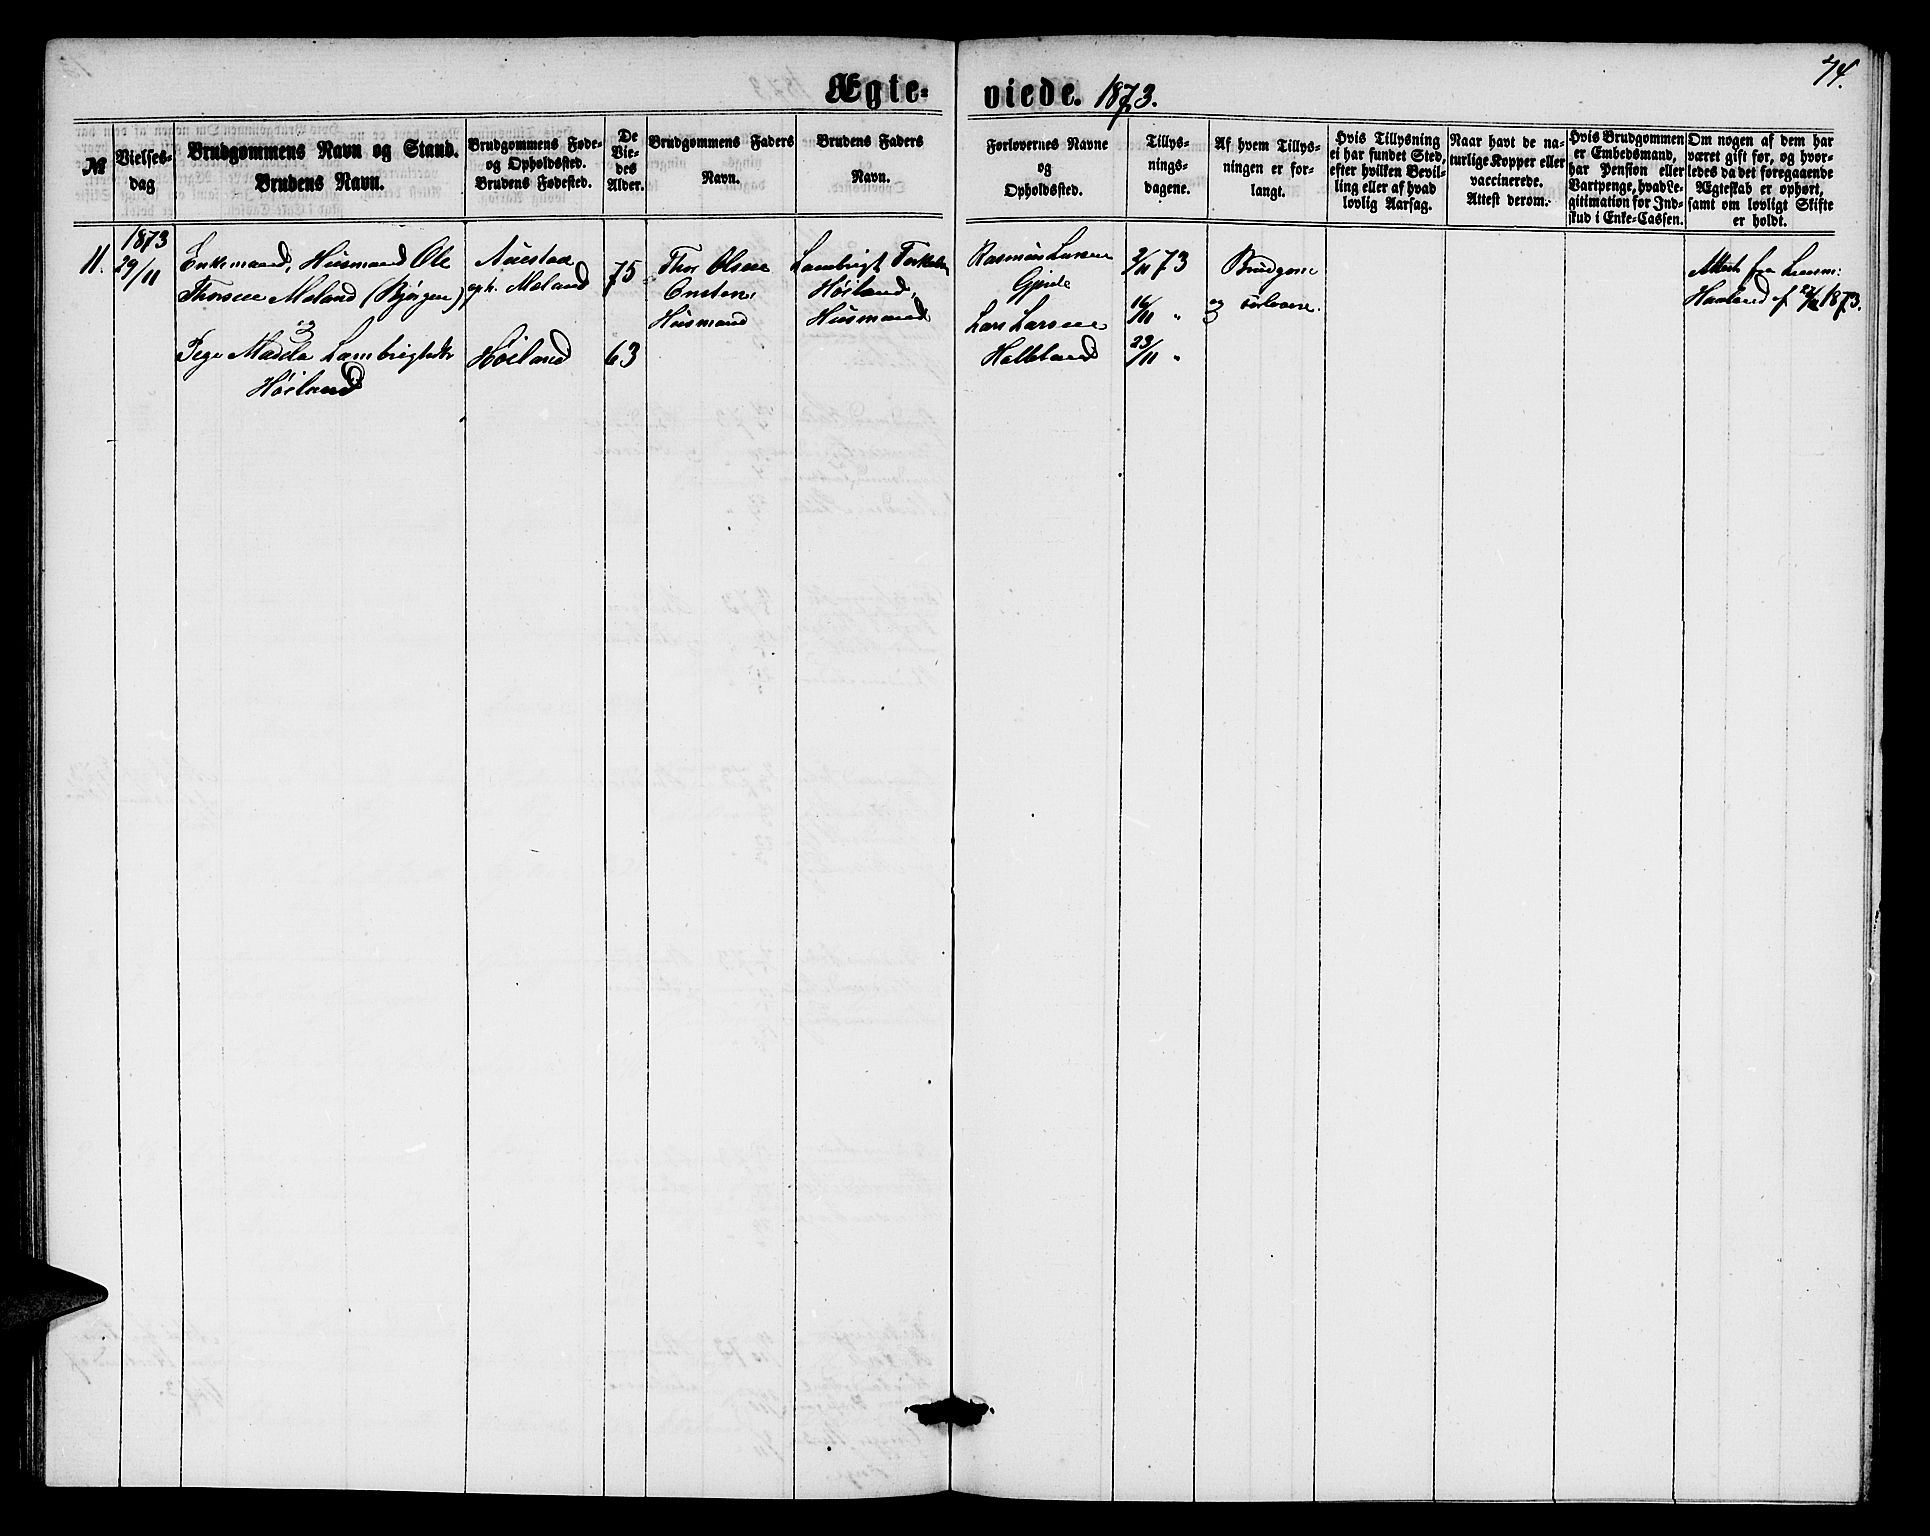 74.
Ægte-
viede. 1873.
№
Vielses-
dag
Brudgommens Navn og Stand.
Brudens Navn.
Brudgommens Føde-
og Opholdssted.
Brudens Fødested.
De
Vie-
des
Alder.
Brudgommens Faders
Navn.
Brudens Faders
Navn.
Forlovernes Navne
og
Opholdssted.
Tillys-
nings-
dagene.
Af hvem Tillys-
ningen er for-
langt.
Hvis Tillysning
ei har fundet Sted,
efter hvilken Bevil-
ling eller af hvad
lovlig Aarsag.
Naar havt de na-
turlige Kopper eller
vaccinerede.
Attest derom.
Hvis Brudgommen
er Embedsmand,
har Pension eller
Vartpenge, hvad Le-
gitimation for Ind-
skud i Enke-Cassen.
Om nogen af dem har
været gift før, og hvor-
ledes da det foregaaende
Ægteskab er ophørt,
samt om lovligt Skifte
er holdt.
11.
1873
29/11
Enkemand, Husmand Ole
Thorsen Meland (Bjørgen)
og
Inge Malela Lambrigtsdtr
Høiland
Auestad
oph. Meland
Høiland
75
63
Thor Olsen
Husmand
Lambrigt Torkels
Høiland,
Husmand
Rasmus Larsen
Gjerde
Lars Larsen
Halleland
2/11 73
16/11 "
23/11 "
Brudgom
og forlovere.
Attest fra Lensm:
Haaland af 1873.